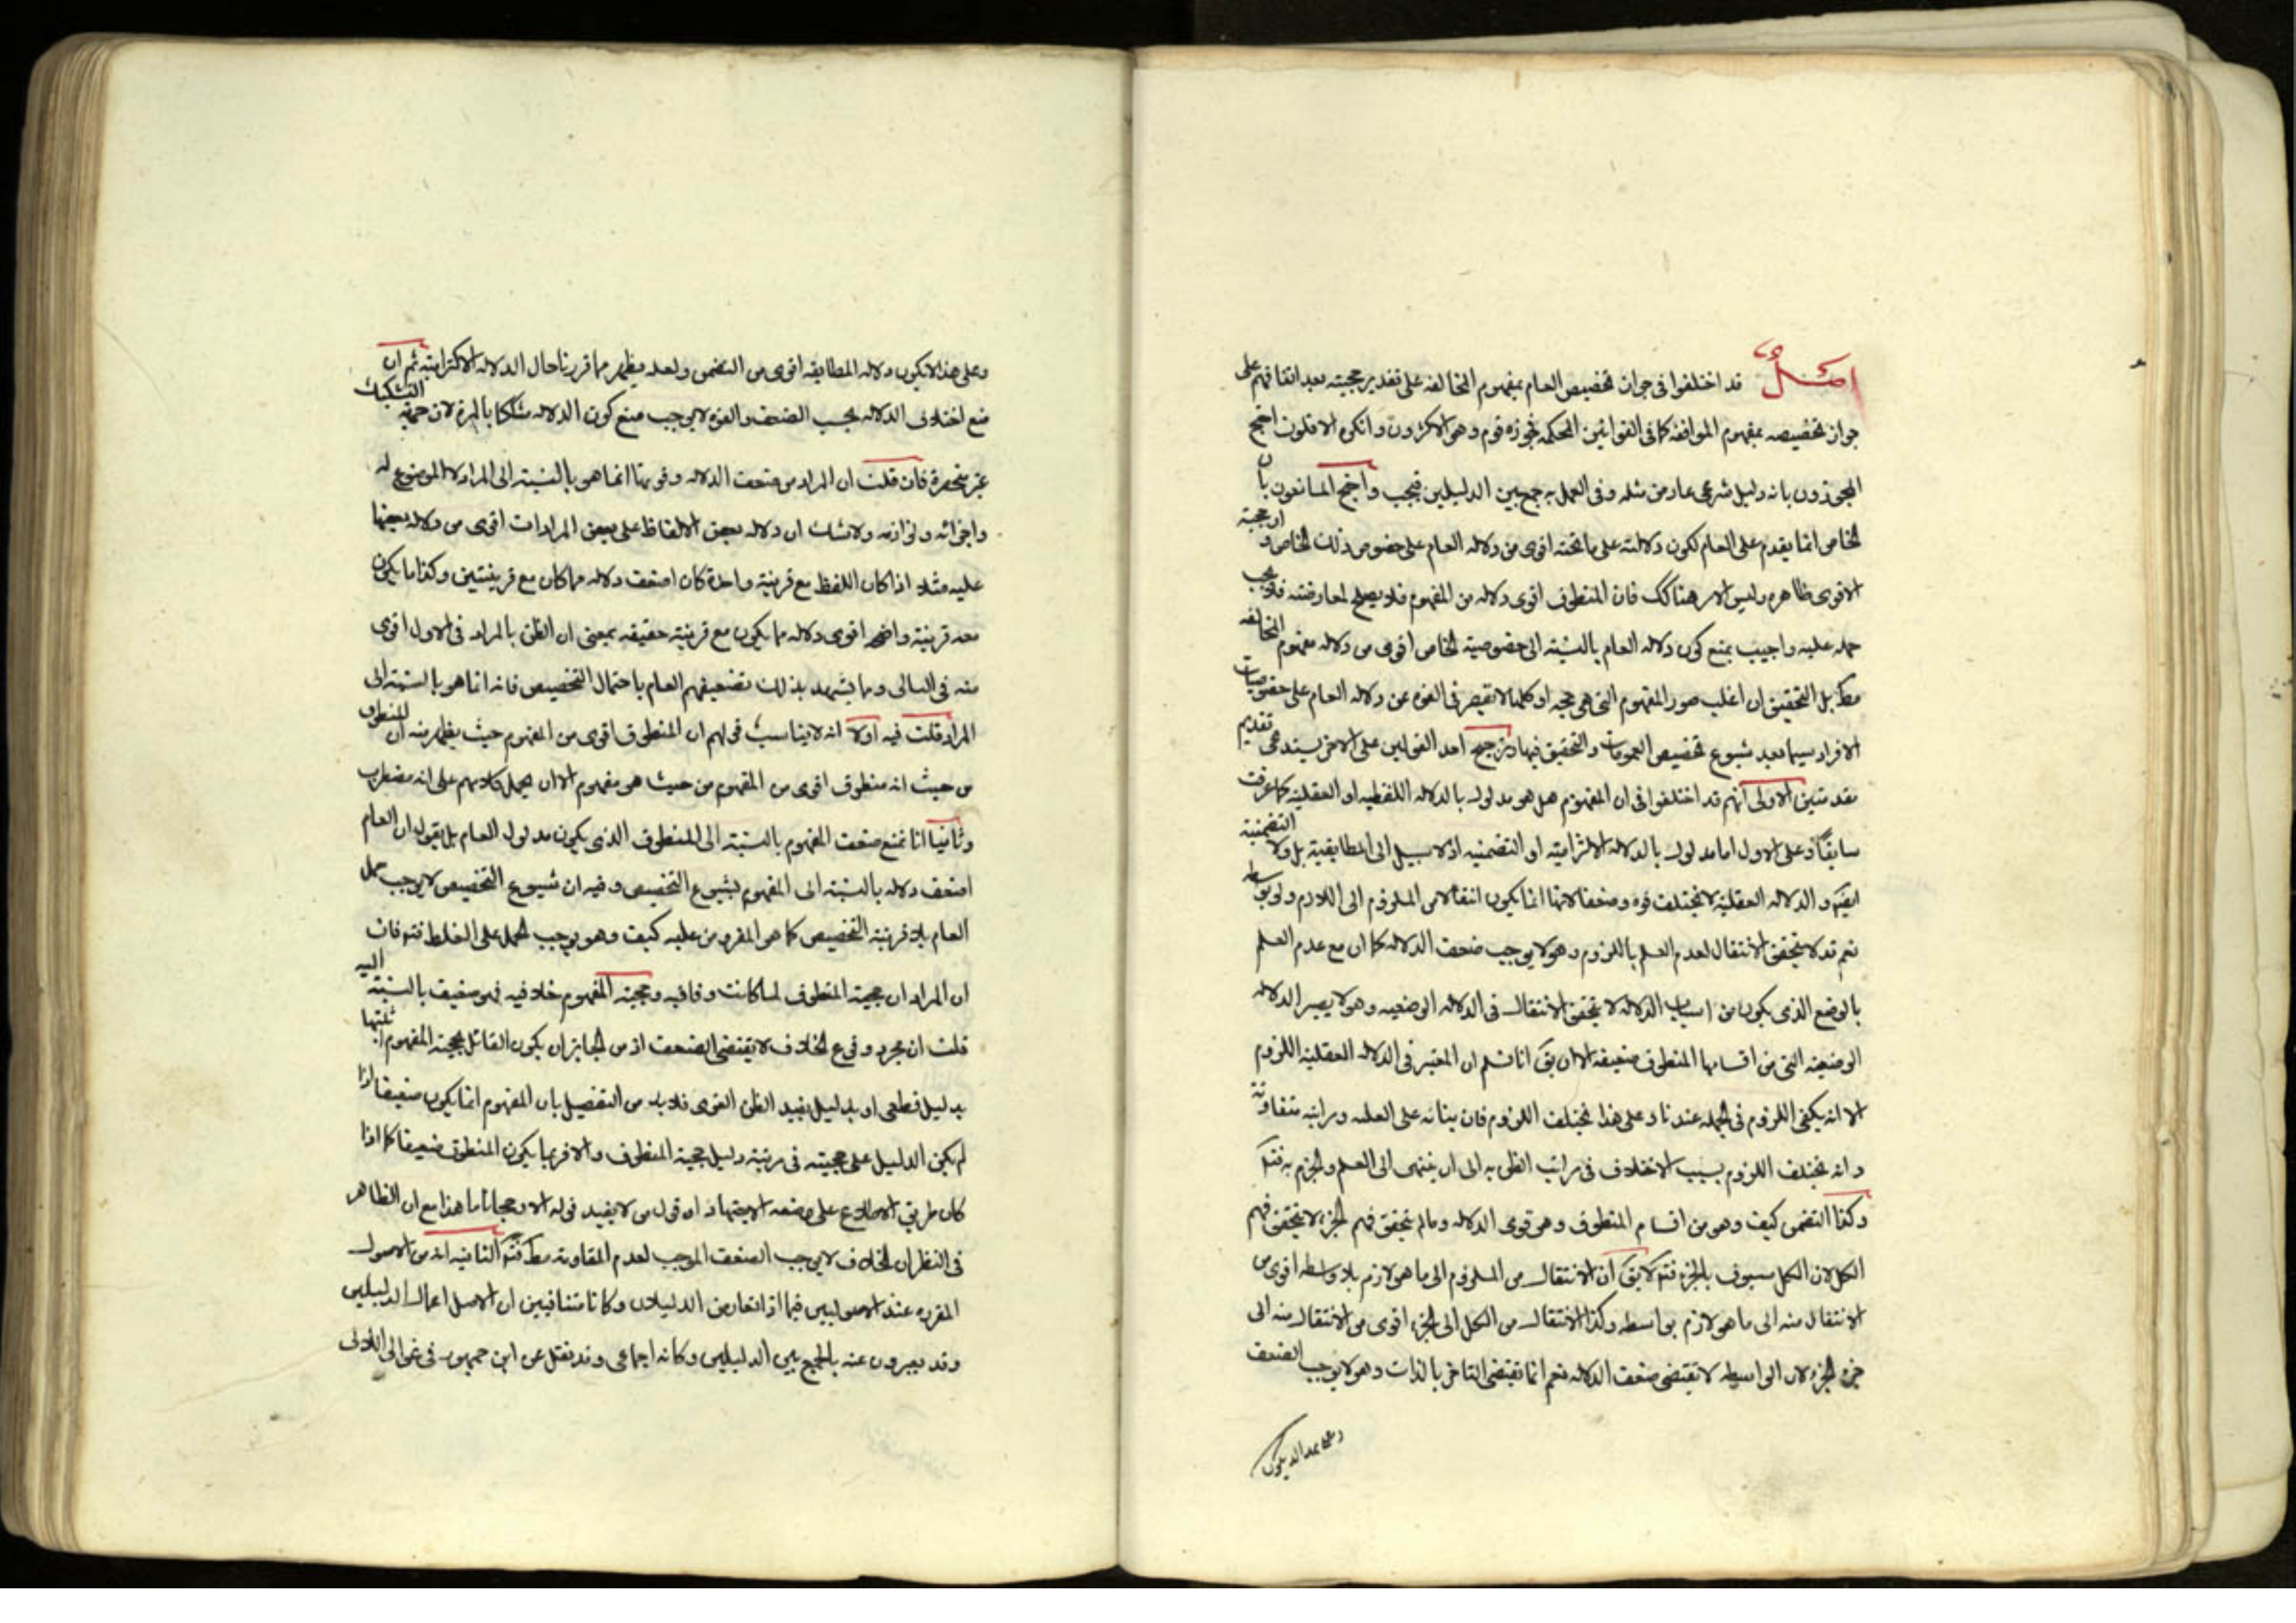 اصل قد اختلفوا فى جواز تخصيص العام بمفهوم المخالفه على تقدير حجيته بعد اتفاقهم على
جواز تخصيصه بمفهوم الموافقه كما فى القوانين المحكمه فجوزه قوم وهم الاكثرون وانكره الاقلون احتج
المجوزون بانه دليل شرعى عارض مثله وفى العمل به جمع بين الدليلين فيجب واحتج المانعون بان
الخاص انما يقدم على العام لكون دلالته على ما تحته اقوى من دلاله العام على خصوص ذلك الخاص وارجحية
الاقوى ظاهره وليس الامر هنا كك فان المنطوق اقوى دلاله من المفهوم فلا يصلح لمعارضته فلا يجب
حمله عليه واجيب بمنع كون دلاله العام بالنسبته الى خصوصية الخاص اقوى من دلاله مفهوم المخالفه
مط بل التحقيق ان اغلب صور المفهوم التى هى حجه او كلها لا يقصر فى القوه عن دلاله العام على خصوصيات
الافراد سيما بعد شيوع تخصيص العمومات والتحقيق فيها وترجيح احد القولين على الاخر يستدعى تقديم
مقدمتين الاولى انهم قد اختلفوا فى ان المفهوم هل هو مدلول بالدلاله اللفظيه او العقلية كما عرفت
سابقا وعلى الاول اما مدلول بالدلاله الالتزاميته او التضمنيه اذ لا سبيل الى المطابقية بل ولا التضمنية
ايضا و الدلاله العقلية لا تختلف قوه وضعفا لانها انما يكون انتقالا من الملزوم الى اللازم ولو بواسطه
نعم قد لا يتحقق الانتقال لعدم العلم باللزوم وهو لا يوجب ضعف الدلاله كما ان مع عدم العلم
بالوضع الذى يكون من اسباب الدلاله لا يتحقق الانتقال فى الدلاله الوضعيه وهو لا يصير الدلاله
الوضعيته التى من اقسامها المنطوق ضعيفه الا ان يق انا نسلم ان المعتبر فى الدلاله العقلية اللزوم
الا انه يكفى اللزوم فى الجمله عندنا وعلى هذا يختلف اللزوم فان بنائه على العله ومراتبه متفاوتة
وانه يختلف اللزوم بسبب الاختلاف فى مراتب الظن به الى ان ينتهى الى العلم والجزم به فتد
وكذا التضمن كيف وهو من اقسام المنطوق وهو قوى الدلاله وما لم يتحقق فهم الجزء لا يتحقق فهم
الكل لان الكل مسبوق بالجزء فتد لا يق ان الانتقال من الملزوم الى ما هو لازم بلا واسطه اقوى من
الانتقال منه الى ما هو لازم بواسطه وكذا الانتقال من الكل الى الجزء اقوى من الانتقال منه الى
جزء الجزء لان الواسطه لا تقتضى ضعف الدلاله نعم انما تقتضى التاخر بالذات وهو لا يوجب الضعف
وعلى هذا لا يكون
وعلى هذا لا يكون دلاله المطابقه اقوى من التضمن ولعله يظهر مما قررنا حال الدلاله الالتزاميته ثم ان
منع اختلاف الدلاله بحسب الضعف والقوه لا يوجب منع كون الدلاله مشككا بالمره لان جهة التشكيك
غير منحصرة فان قلت ان المراد من ضعف الدلاله وقوتها انما هو بالنسبته الى المراد لا الموضوع له
واجزائه ولوازمه ولا شك ان دلاله بعض الالفاظ على بعض المرادات اقوى من دلاله بعضها
عليه مثلا اذا كان اللفظ مع قرينة واحدة كان اضعف دلاله مما كان مع قرينتين وكذا ما يكون
معه قرينة واضحه اقوى دلاله مما يكون مع قرينة خفيفه بمعنى ان الظن بالمراد فى الاول اقوى
منه فى التالى ومما يشهد بذلك تضعيفهم العام باحتمال التخصيص فانه انما هو بالنسبته الى
المراد قلت فيه اولا انه لا يناسب قولهم ان المنطوق اقوى من المفهوم حيث يظهر منه ان المنطوق
من حيث انه منطوق اقوى من المفهوم من حيث هو مفهوم الا ان يحمل كلامهم على انه مضطرب
وثانيا انا نمنع ضعف المفهوم بالنسبته الى المنطوق الذى يكون مدلول العام بل يقول ان العام
اضعف دلاله بالنسبته الى المفهوم لشيوع التخصيص وفيه ان شيوع التخصيص لا يوجب حمل
العام بلا قرينة التخصيص كما هو المفروض عليه كيف وهو يوجب الحمل على الغلط فتد فان
ان المراد ان حجية المنطوق لما كانت وفاقيه وحجية المفهوم خلافيه فهو ضعيف بالنسبته اليه
قلت ان مجرد وقوع الخلاف لا يقتضى الضعف اذ من الجايز ان يكون القائل بحجية المفهوم اثبتها
بدليل قطعى او بدليل يفيد الظن القوى فلا بد من التفصيل بان المفهوم انما يكون ضعيفا اذا
لم يكن الدليل على حجيته فى مرتبة دليل حجية المنطوق والا فربما يكون المنطوق ضعيفا كما اذا
كان طريق الاطلاع على وضعه الاجتهاد او قول من لا يفيد قوله الا رجحانا ما هذا مع ان الظاهر
فى النظر ان الخلاف لا يوجب الضعف الموجب لعدم المقاومة مط فتد الثانيه انه من الاصول
المقرره عند الاصوليين فيما اذا تعارض الدليلان وكانا متنافيين ان الاصل اعمال الدليلين
وقد يعبرون عنه بالجمع بين الدليلين وكانه اجماعى وقد نقل عن ابن جمهور فى غوالى اللاولى